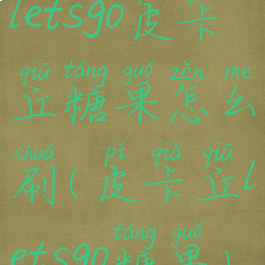 letsgo皮卡
qiū táng guǒ zěn me
丘糖果怎么
shuā pí qiǎ qiū
刷(皮卡丘l
táng guǒ
etsgo糖果)